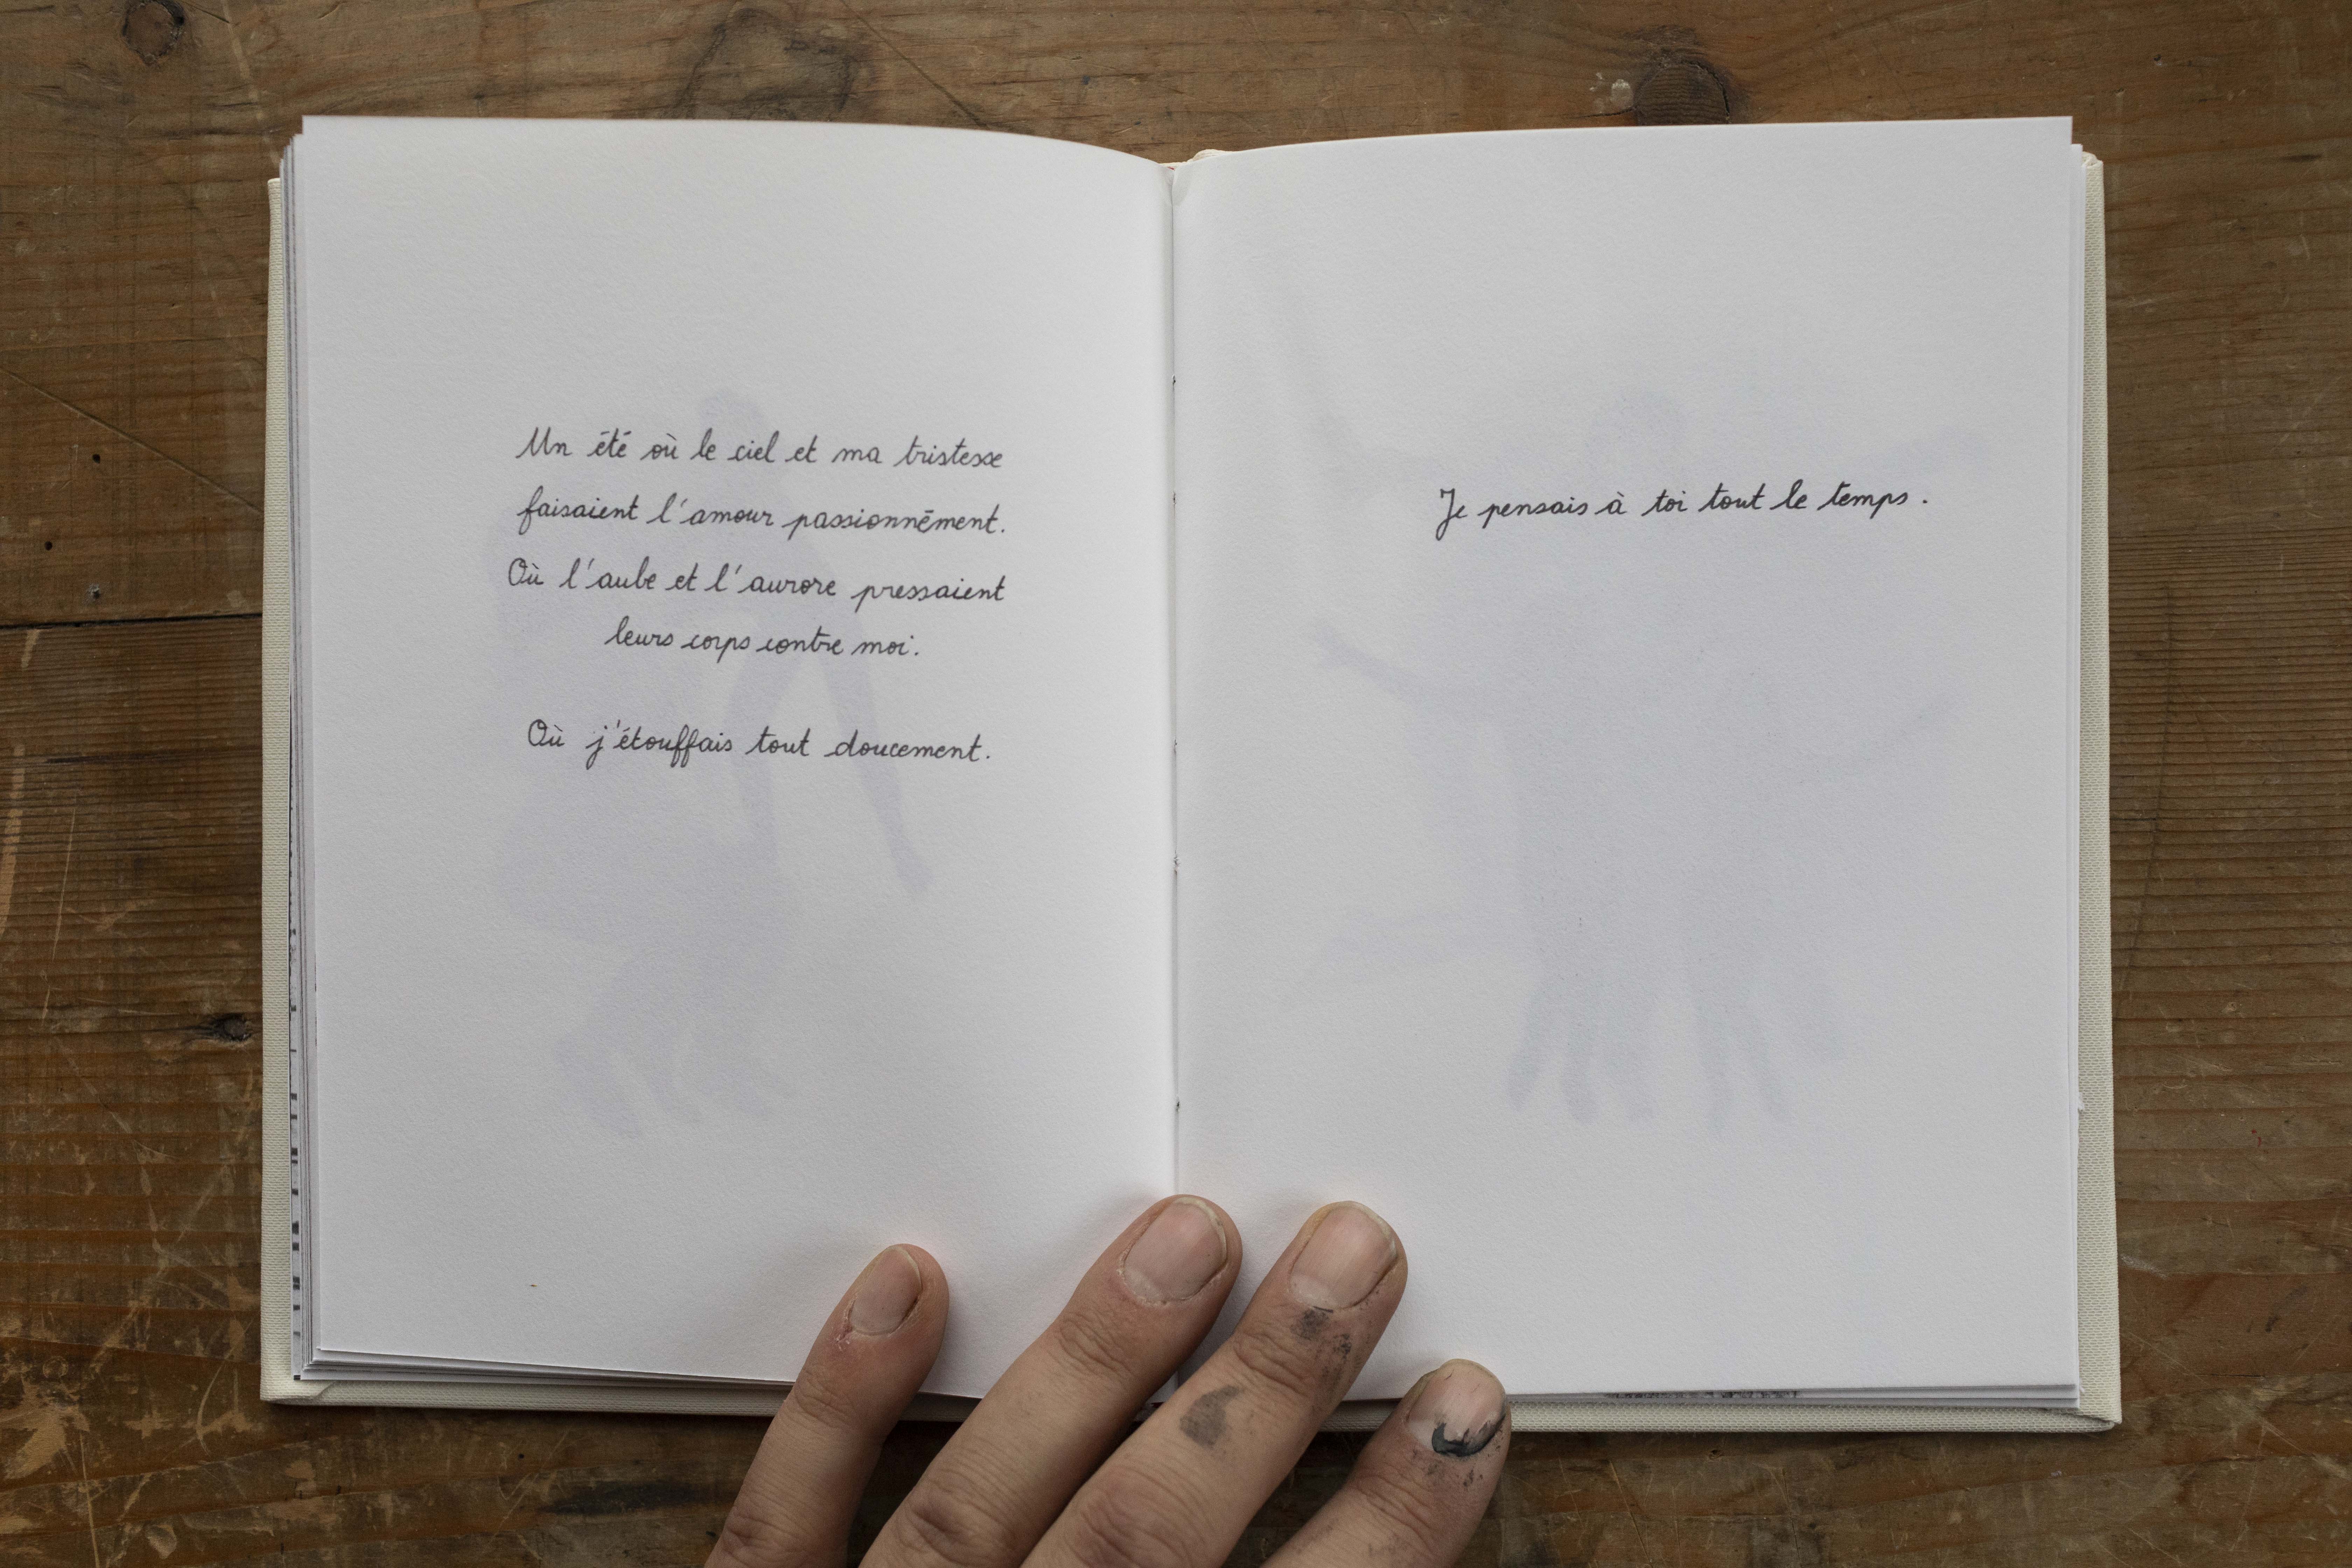 Un été où le ciel et ma tristesse
faisaient l'amour passionnément.
Où l'aube et l'aurore pressaient
leurs corps contre moi.
Où j'étouffais tout doucement.
Je pensais à toi tout le temps.